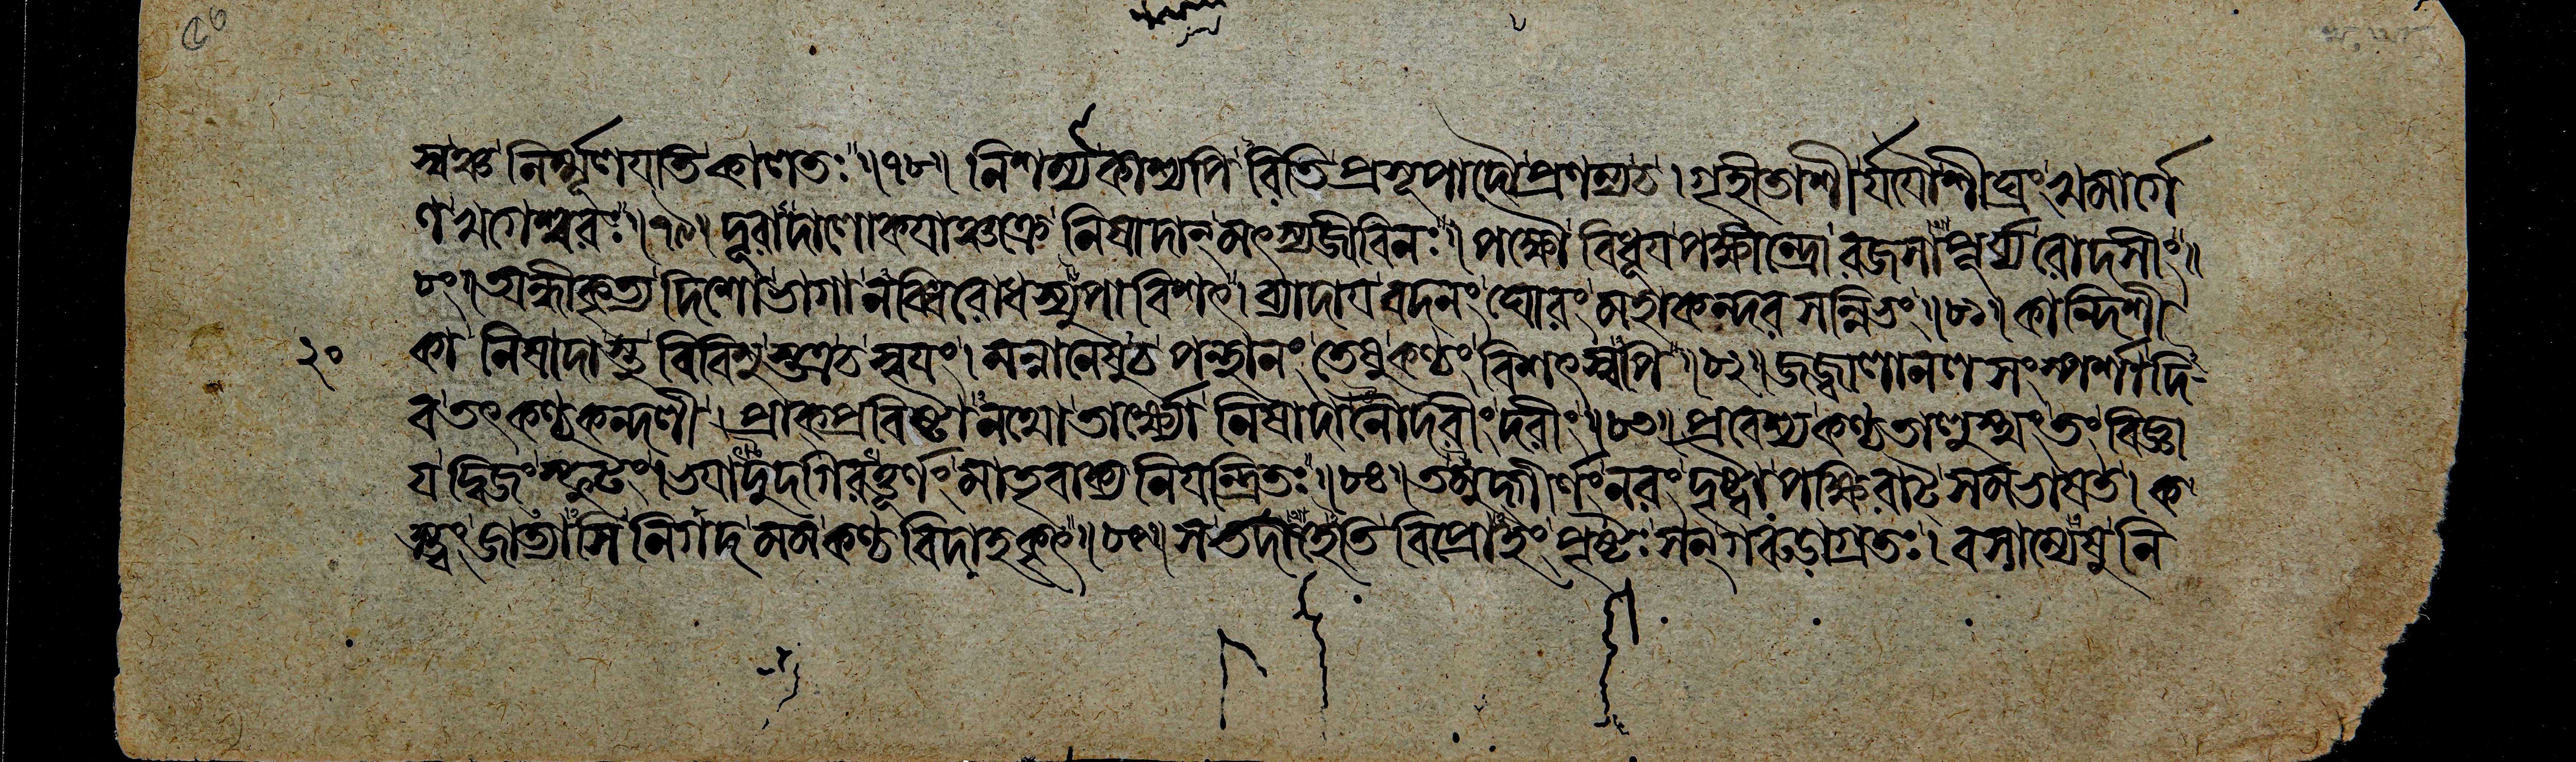 স্বঞ্চ নির্ম্মূলযতি কালতঃ ॥৭৮॥ নিশম্য কাশ্যপিরিতি প্রসূপাদৌ প্রণম্য চ । গৃহীতাশীর্যযৌ শীঘ্রং খমার্গে
ণ খগেশ্বরঃ ॥৭৯॥ দূরাদালোকযাঞ্চক্রে নিষাদান্ মৎস্যজীবিনঃ । পক্ষৌ বিধূয পক্ষীন্দ্রো রজসাপূর্য্য রোদসীং ॥
৮০॥ অন্ধীকৃত্য দিশোভাগানব্ধিরোধস্যুপাবিশৎ । ব্যাদায বদনং ঘোরং মহাকন্দরসন্নিভং ॥৮১॥ কান্দিশী
২০ কা নিষাদাস্তু বিবিশুস্তত্র চ স্বযং । মন্বানেষু চ পন্থানং তেষু কণ্ঠং বিশৎস্বপি ॥৮২॥ জজ্বালানলসংস্পর্শাদি
ব তৎকণ্ঠকন্দলী । প্রাক্প্রবিষ্টানথো তার্ক্ষ্যো নিষাদানৌদরীং দরীং ॥৮৩॥ প্রবেশ্য কণ্ঠতালুস্থং তং বিজ্ঞা
য দ্বিজং স্ফুটং । ভযাদুদগিরত্তূর্ণং মাতৃবাক্যনিযন্ত্রিতঃ ॥৮৪॥ তমুদ্গীর্ণং নরং দৃষ্ট্বা পক্ষিরাট্ সমভাষত । ক
স্ত্বং জাত্যাসি নিগদ মম কণ্ঠবিদাহকৃৎ ॥৮৫॥ স তদাহেতি বিপ্রোহং পৃষ্টঃ সন্ গরুডাগ্রতঃ । বসাম্যেষু নি